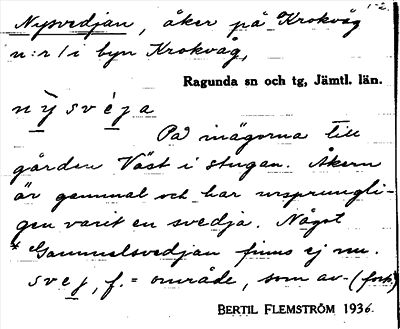 1-2.
Nysvedjan, åker på Krokvåg
n:r 1 i byn Krokvåg,
Ragunda sn och tg, Jämtl. län.
nỳsvèja
På inägorna till
gården Väst i stugan. Åkern
är gammal och har ursprungli-
gen varit en svedja. Något
* Gammelsvedjan finns ej nu.
svej, f. = område, som av- (forts.)
BERTIL FLEMSTRÖM 1936.